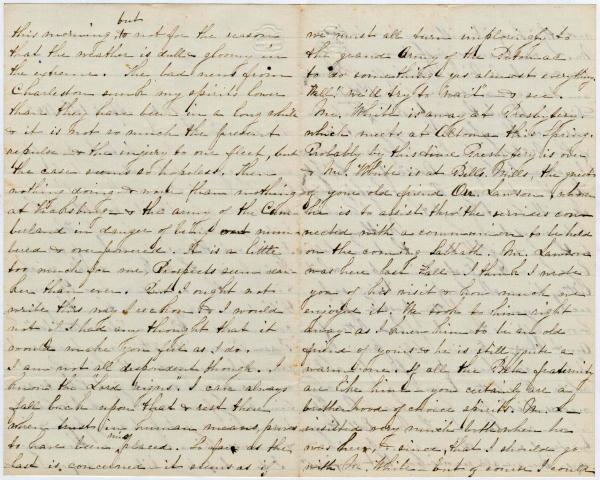 but
this morning, to not for the reason
that the weather is dull & gloomy in
the extreme. The bad news from
Charleston sunk my spirits lower
than they have been in a long while
& it is not so much the present
repulse & the injury to our fleet, but
the case seems so hopeless. Then
nothing doing & worse than nothing
at Vicksburg & the army of the Cum
berland in danger of being out num
bered & overpowered. It is a little
too much for me, Prospects seem dar
ker than ever. But I ought not
write this way I reckon & I would
not if I had any thought that it
would make you feel as I do.
I am not all despondent though. I
know the Lord reigns. I can always
fall back upon that & rest there
when trust in human means, proves
to have been misplaced. So far as the
last is concerned it seems as if
we must all turn imploringly to
the grand Army of the Potomac
to do something yes almost everything
Well! we'll try to "wait" & see.
Mr. White is away at Presbytery.
which meets at Altoona this Spring.
Probably by this time Presbytery is over
& Mr. White is at Bells. Mills, the guest
of your old friend Mr. Lawson, whom
he is to assist thro' the services con
nected with a communion to be held
on the coming Sabbath. Mr. Lawson
was here last Fall. I think I wrote
you of his visit & how much we
enjoyed it. We took to him right
away as I knew him to be an old
friend of yours & he is still quite a
warm one. If all the Beta fraternity
are like him & you certainly are a
brotherhood of choice spirits. Mr. L
insisted very much both when he
was here, & since, that I should go
with Mr. White but of course I could